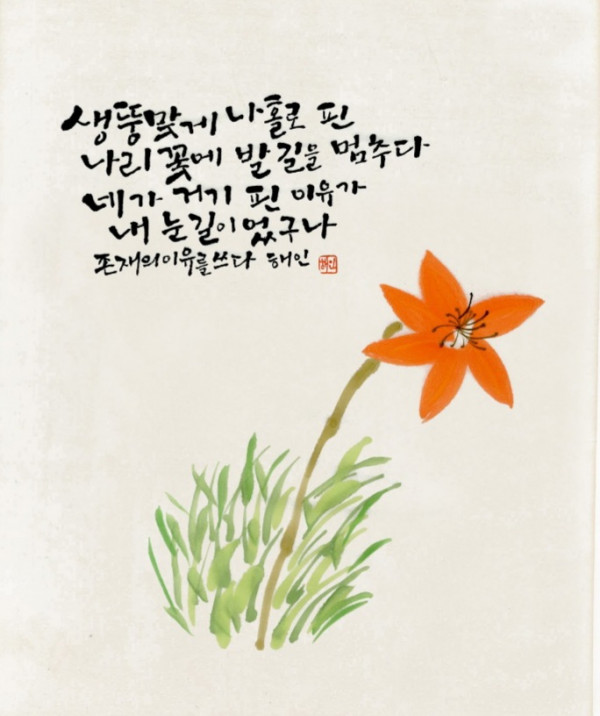 생뚱맞게 나홀로 핀
나리꽃에 발길을 멈추다
네가 거기 핀 이유가
내 눈길이었구나
존재의이유를쓰다 해인